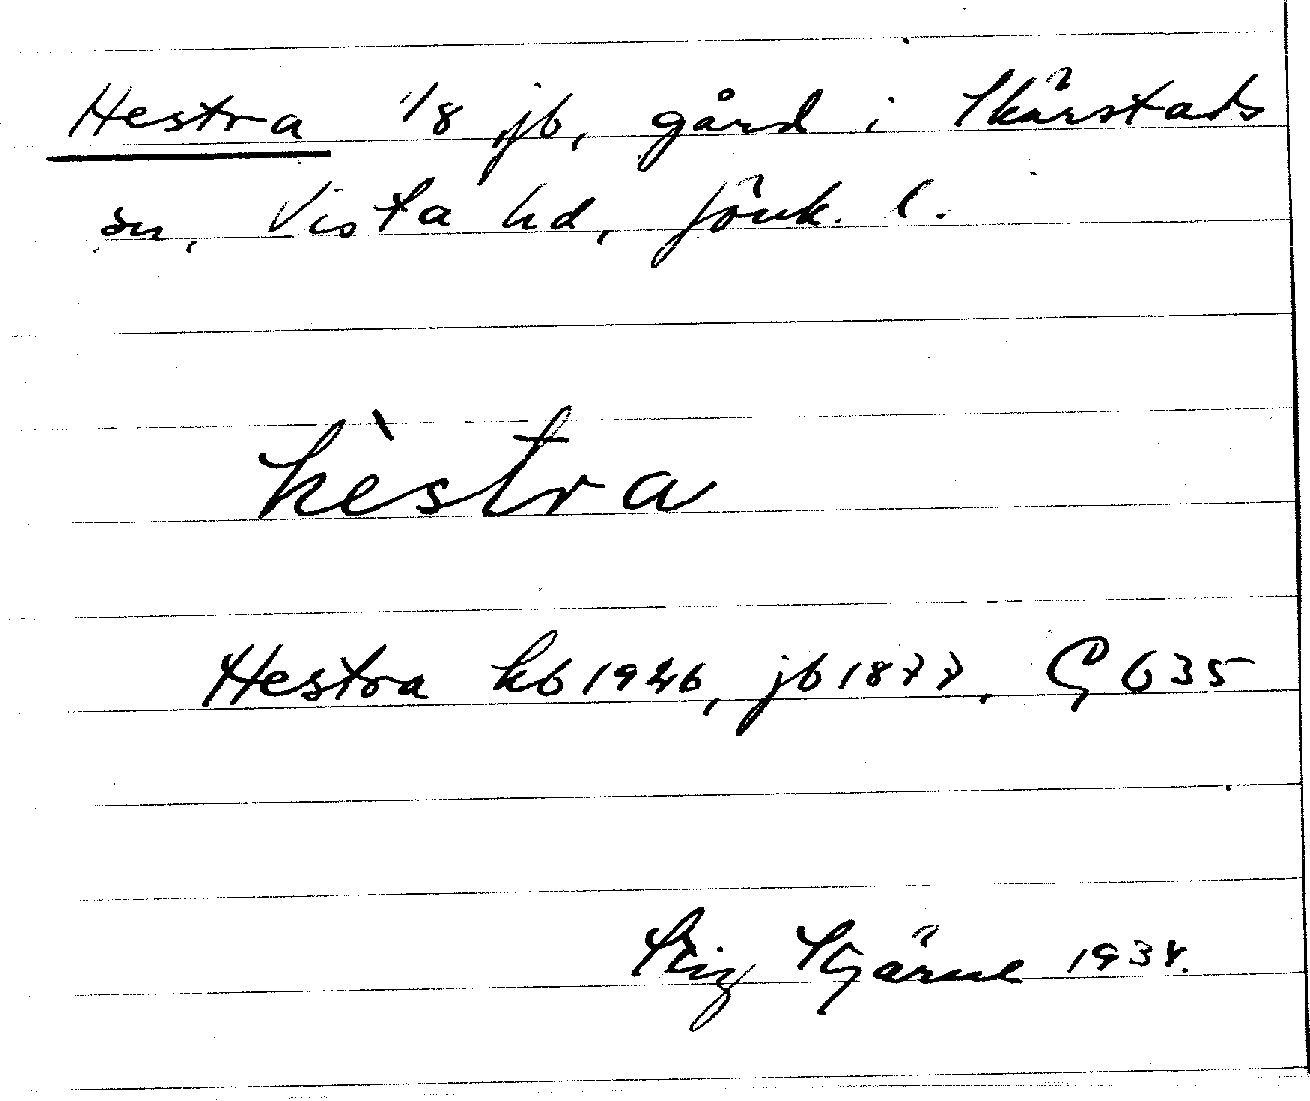 Hestra 1/8 jb, gård i Skärstads
sn, Vista hd, Jönk. l.
hèstra
Hestra kb 1926, jb 1877, G 635
Stig Stjärne 1934.